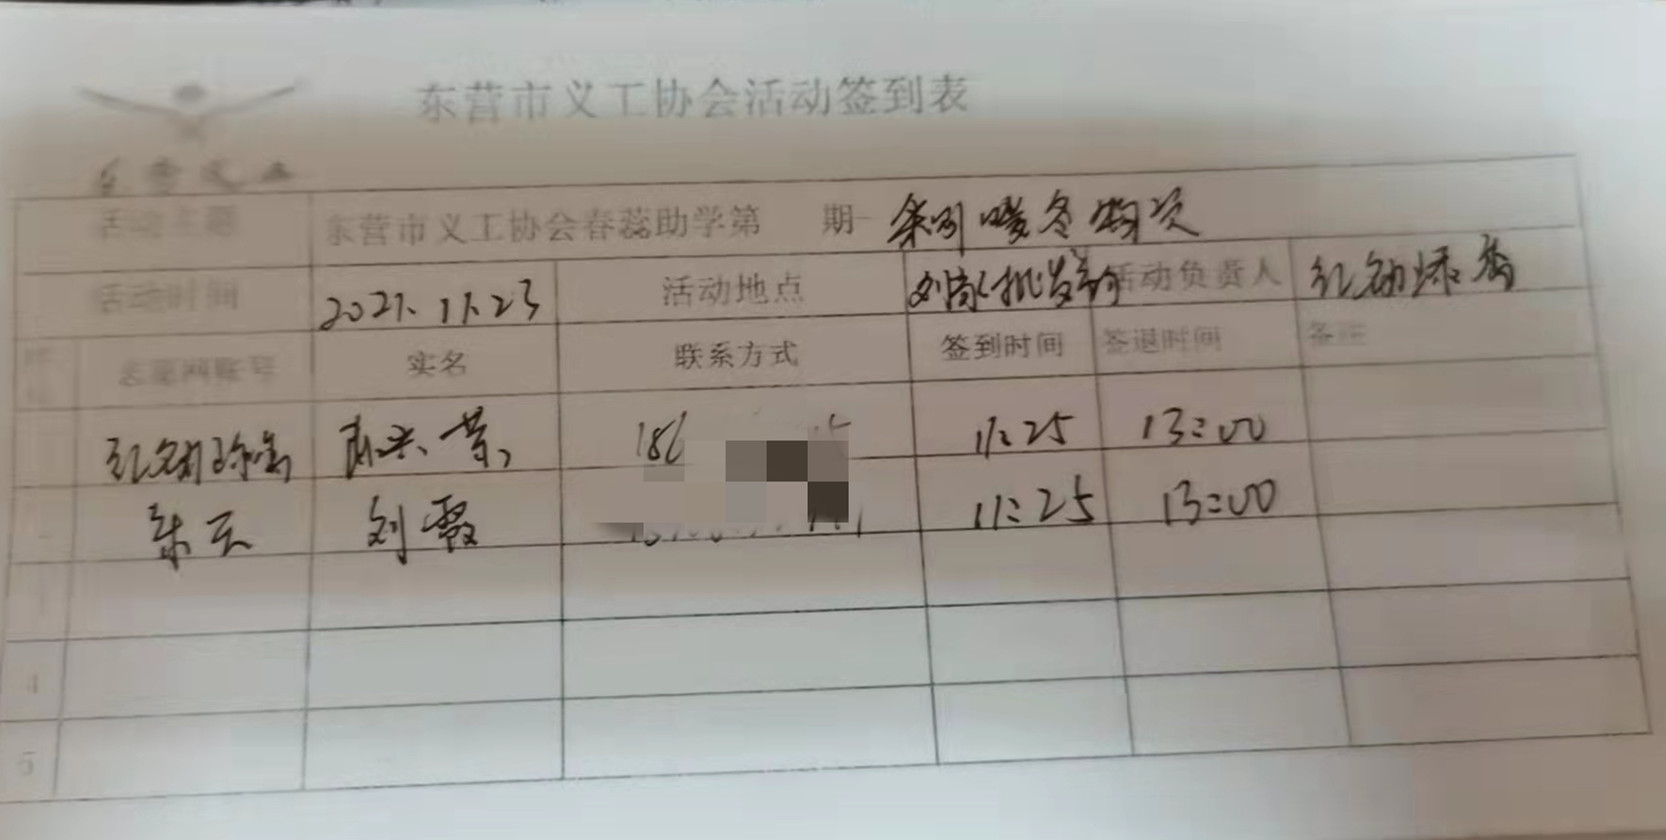 东营市义工协会活动签到表
东营义工
活动主题 东营市义工协会春蕊助学第 期 采购暖冬物资
活动时间 2021.11.23 活动地点 刘家批发 活动负责人
志愿网账号 实名 联系方式 签到时间 签退时间 备注
186 11:25 13:00
东云 刘霞 11:25 13:00
4
5